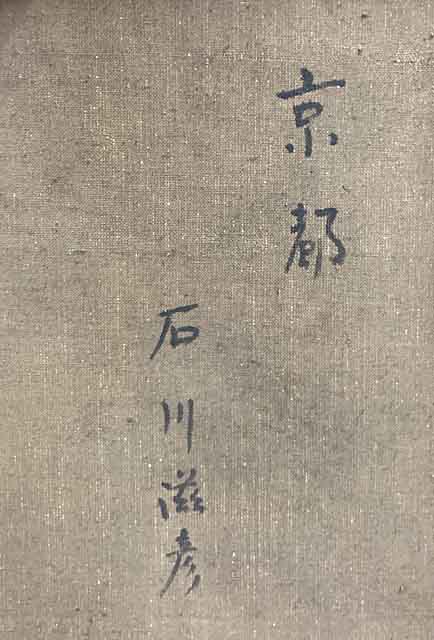 京都
石川滋彦